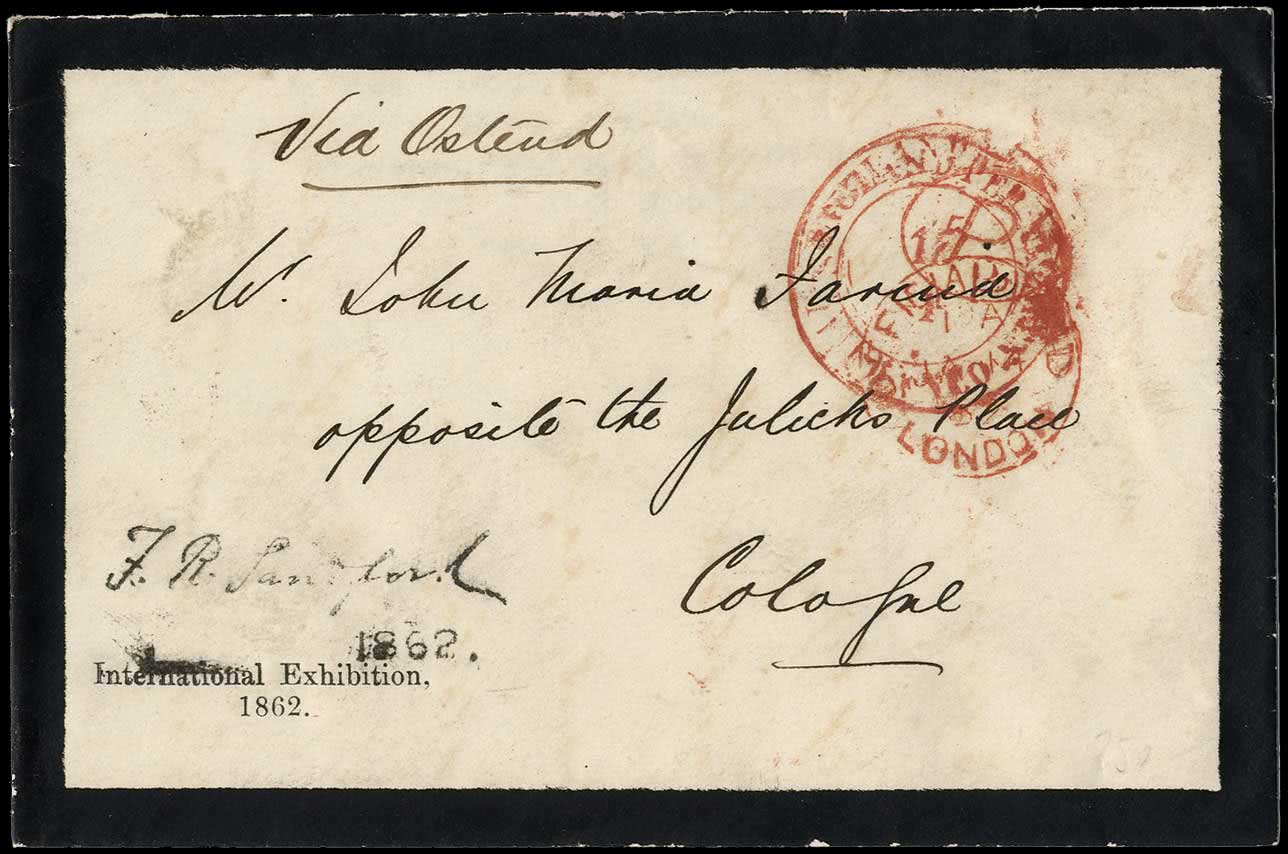 Via Ostend
Mr. John Maria Farina
opposite the Julichs Place
Cologne
F. R. Sandford
1862.
International Exhibition,
1862.
LONDON
PAID
15